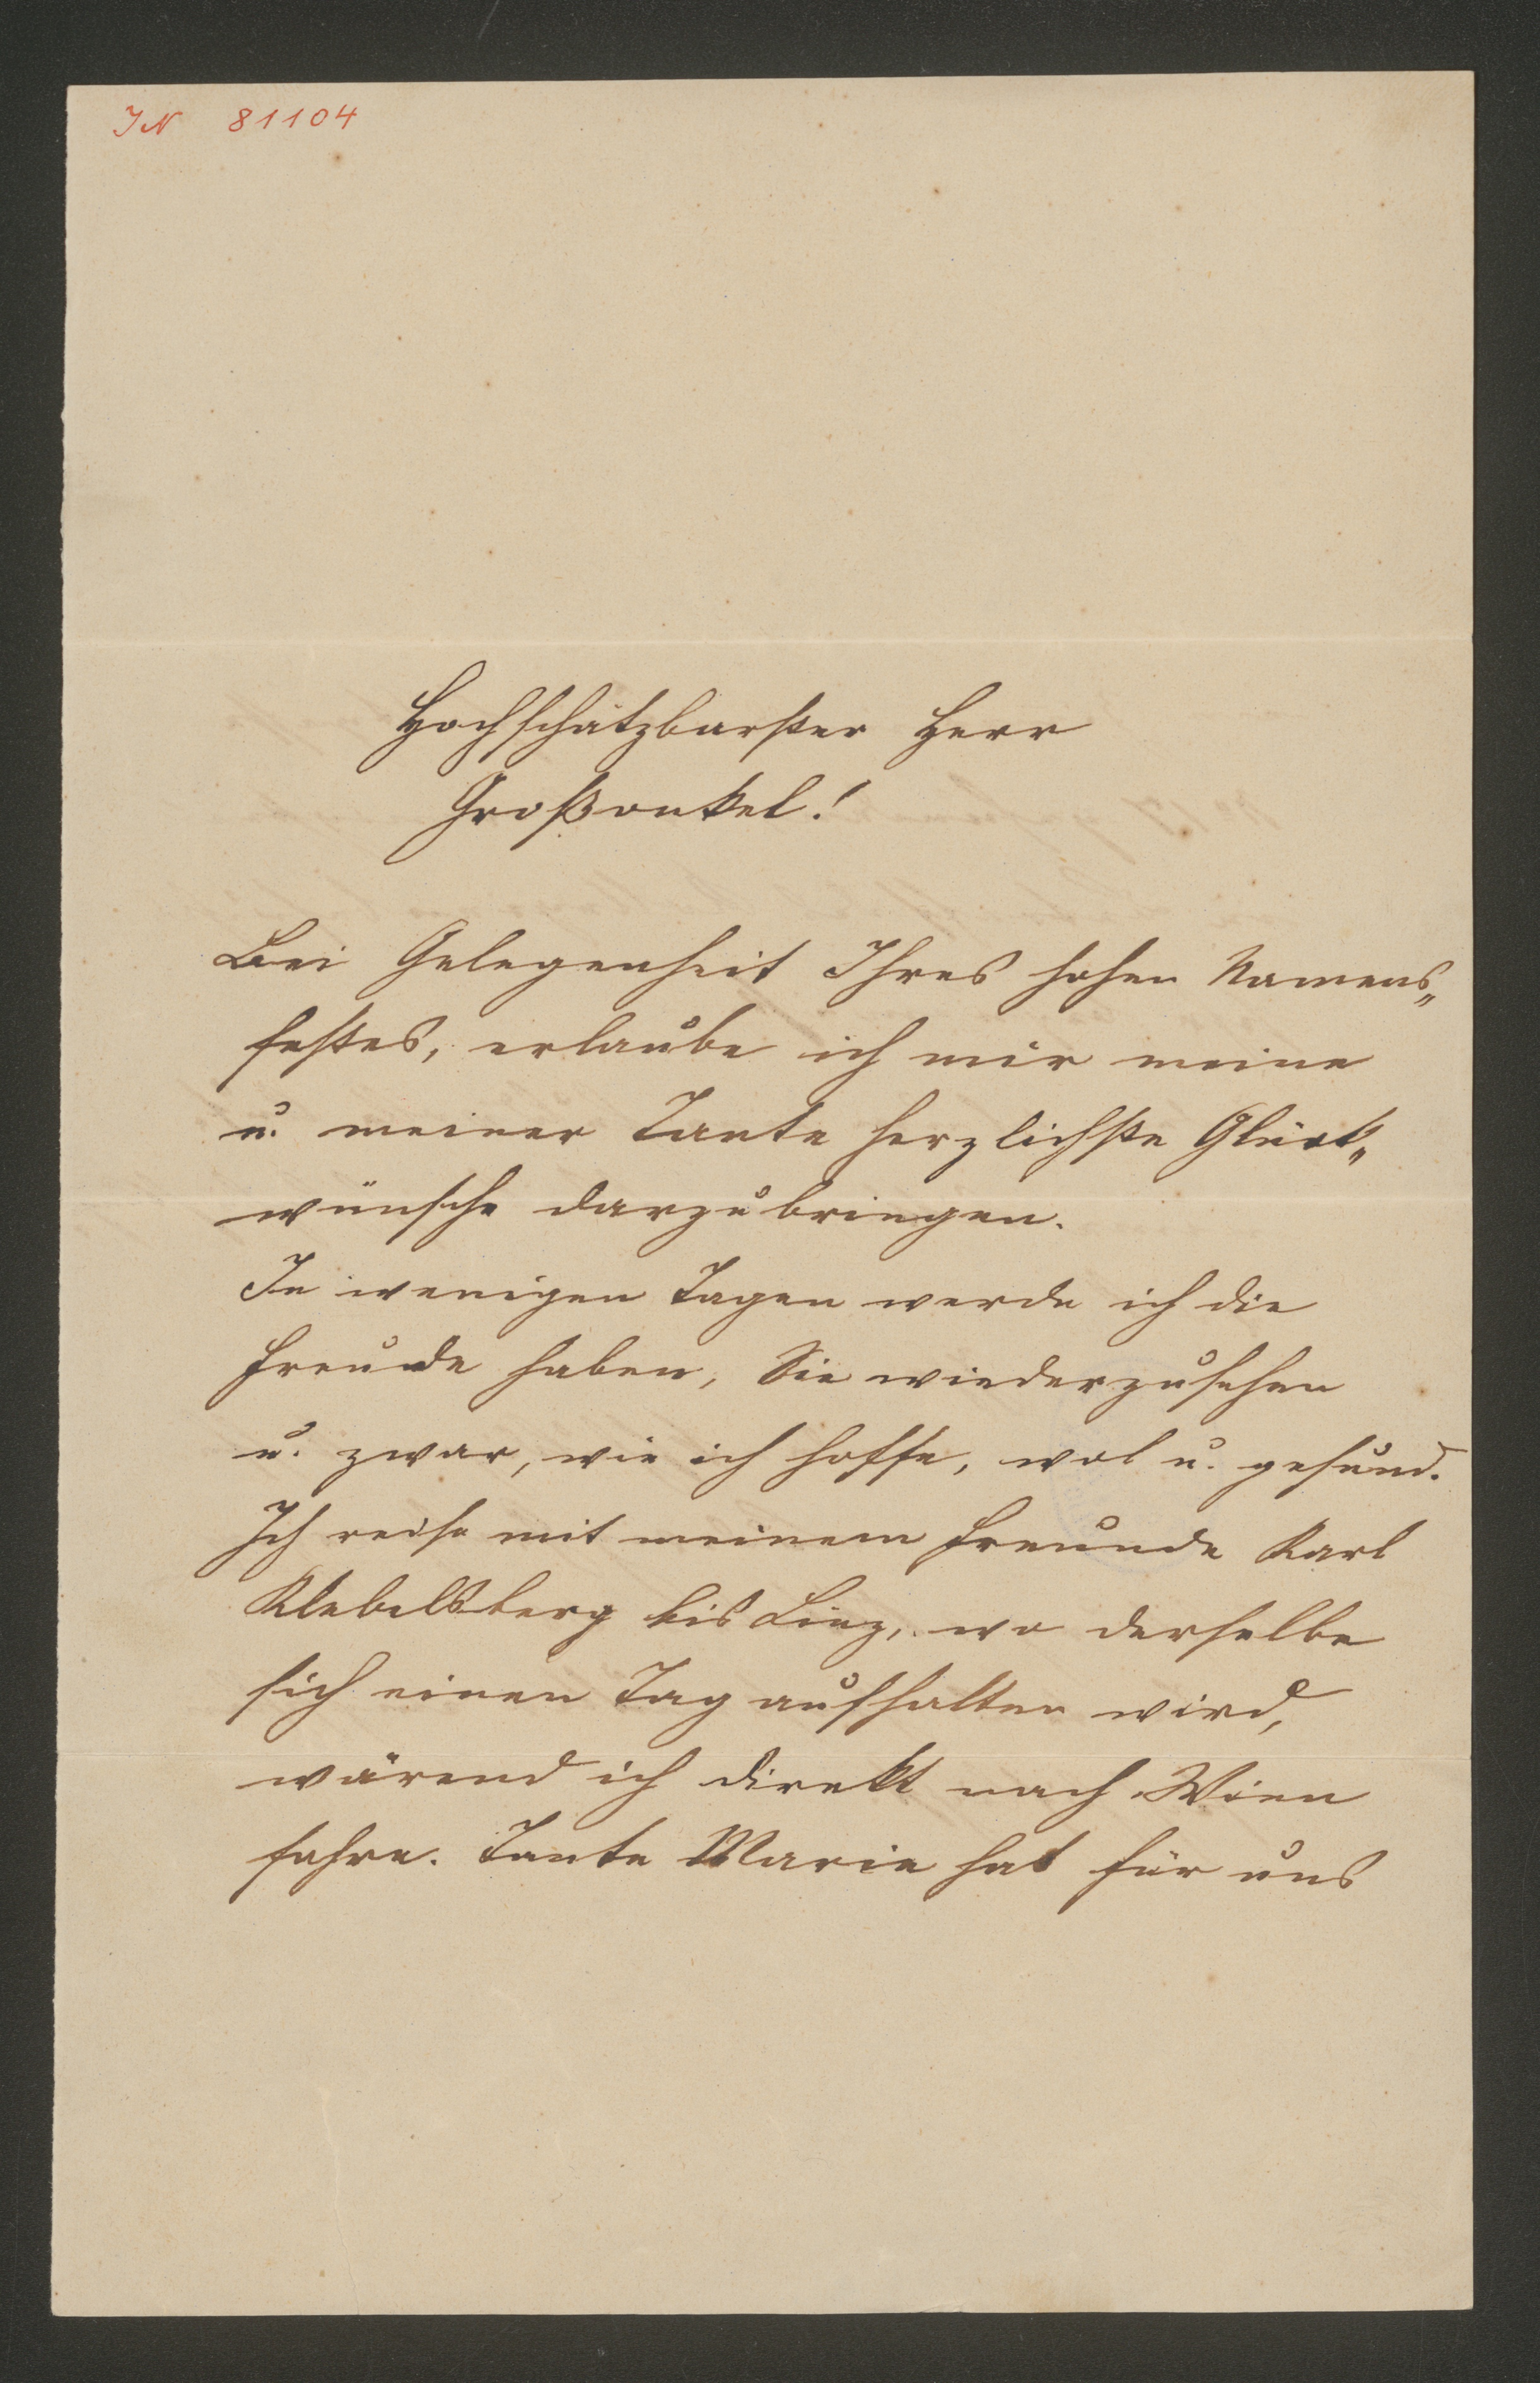 IN 81104
Hochschätzbarster Herr
Großonkel!
Bei Gelegenheit Ihres hohen Namens„
festes, erlaube ich mir meine
u. meiner Tante herzlichste Glück„
wünsche darzubringen.
In wenigen Tagen werde ich die
Freude haben, Sie wiederzusehen
u. zwar, wie ich hoffe, wol u. gesund.
Ich reise mit meinem Freunde Karl
Klebelsberg bis Linz, wo derselbe
sich einen Tag aufhalten wird,
wärend ich direkt nach Wien
fahre. Tante Marie hat für uns